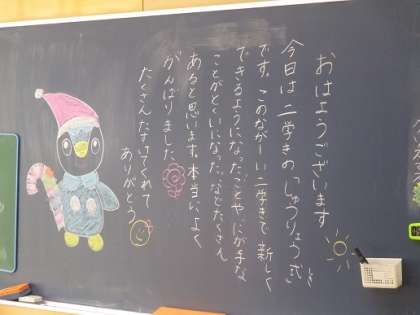 おはようございます
今日は二学きの「しゅうりょう式」
です。このながーい二学きで新しく
できるようになったことや、にが手な
ことがとくいになったなどたくさん
あると思います。本当によく
がんばりました
たくさんたすけてくれて
ありがとう